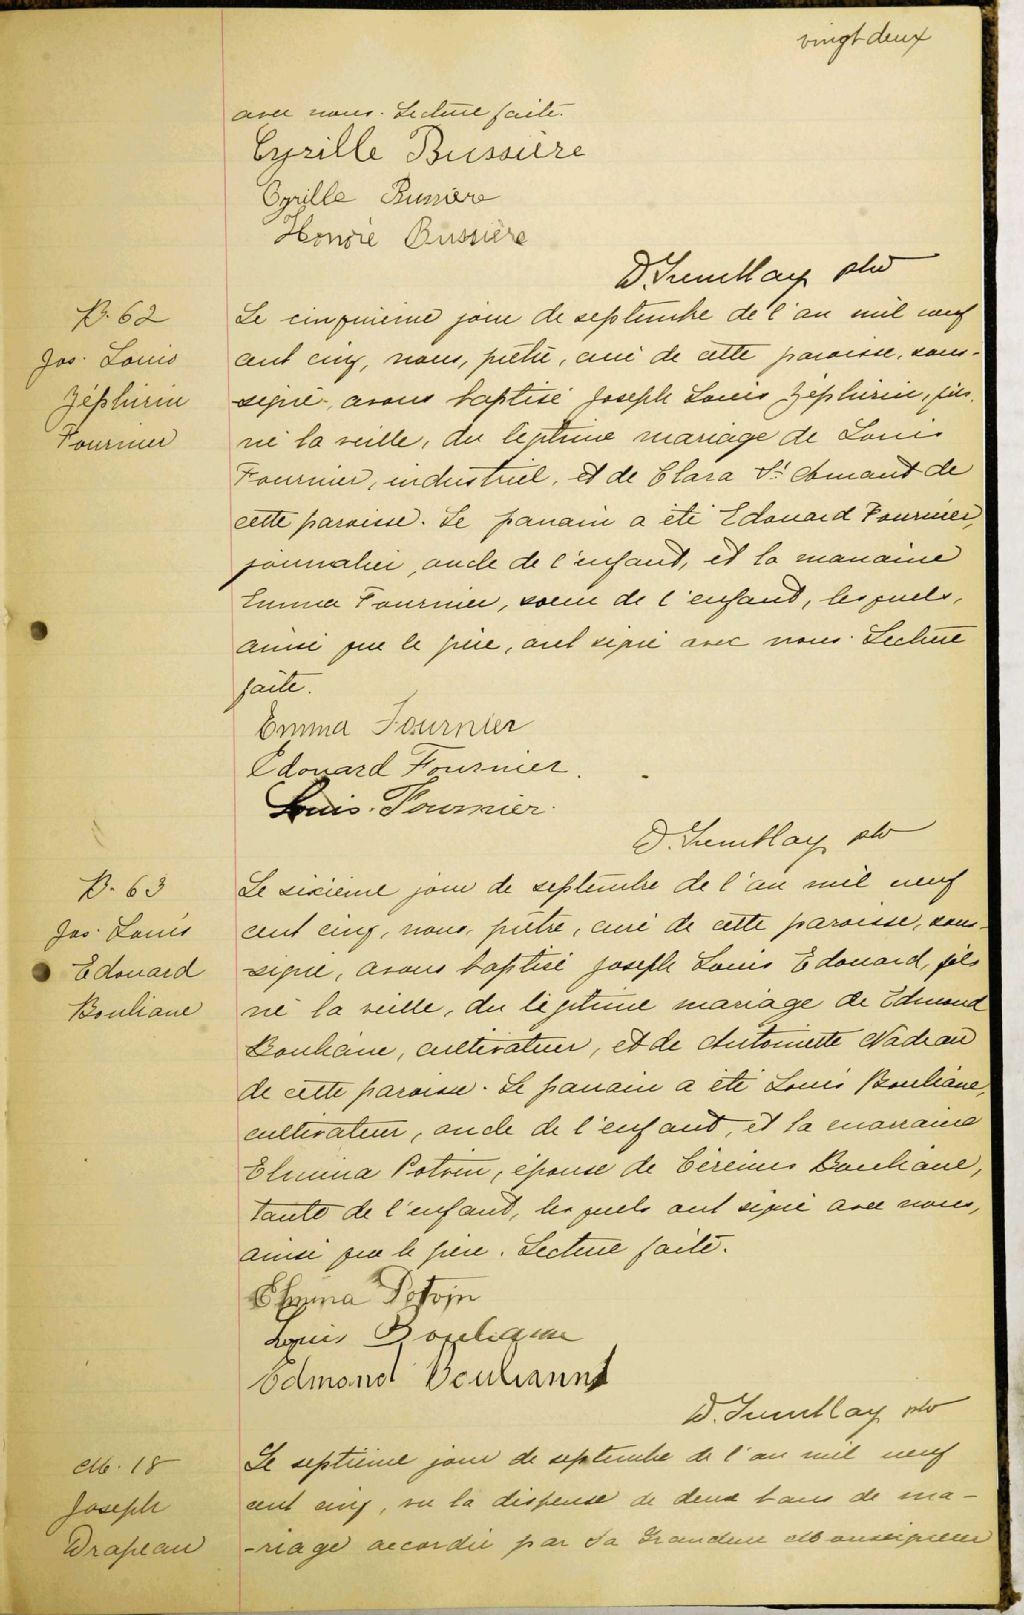 vingt deux
avec nous. Lecture faite.
Cyrille Bussière
Cyrille Bussière
Honoré Bussière
D. Tremblay ptre
B. 62
Jos. Louis
Zéphirin
Fournier
Le cinquième jour de septembre de l'an mil neuf
cent cinq, nous, prêtre, curé de cette paroisse, sous-
-signé, avons baptisé Joseph Louis Zéphirin, fils,
né la veille, du légitime mariage de Louis
Fournier, industriel, et de Clara St. Amant de
cette paroisse. Le parrain a été Edouard Fournier,
journalier, oncle de l'enfant, et la marraine
Emma Fournier, soeur de l'enfant, lesquels,
ainsi que le père, ont signé avec nous. Lecture
faite.
Emma Fournier
Edouard Fournier.
Louis. Fournier.
D. Tremblay ptre
B. 63
Jos. Louis
Edouard
Bouliane
Le sixième jour de septembre de l'an mil neuf
cent cinq, nous, prêtre, curé de cette paroisse, sous-
-signé, avons baptisé Joseph Louis Edouard, fils
né la veille, du légitime mariage de Edmond
Bouliane, cultivateur, et de Antoinette Nadeau
de cette paroisse. Le parrain a été Louis Bouliane,
cultivateur, oncle de l'enfant, et la marraine
Elmina Potvin, épouse de Bouliane,
tante de l'enfant, lesquels ont signé avec nous,
ainsi que le père. Lecture faite.
Elmina Potvin
Louis Bouliane
Edmond Boulianne
D. Tremblay ptre
M. 18
Joseph
Drapeau
Le septième jour de septembre de l'an mil neuf
cent cinq, vu la dispense de deux bans de ma-
-riage accordée par Sa Grandeur Monseigneur